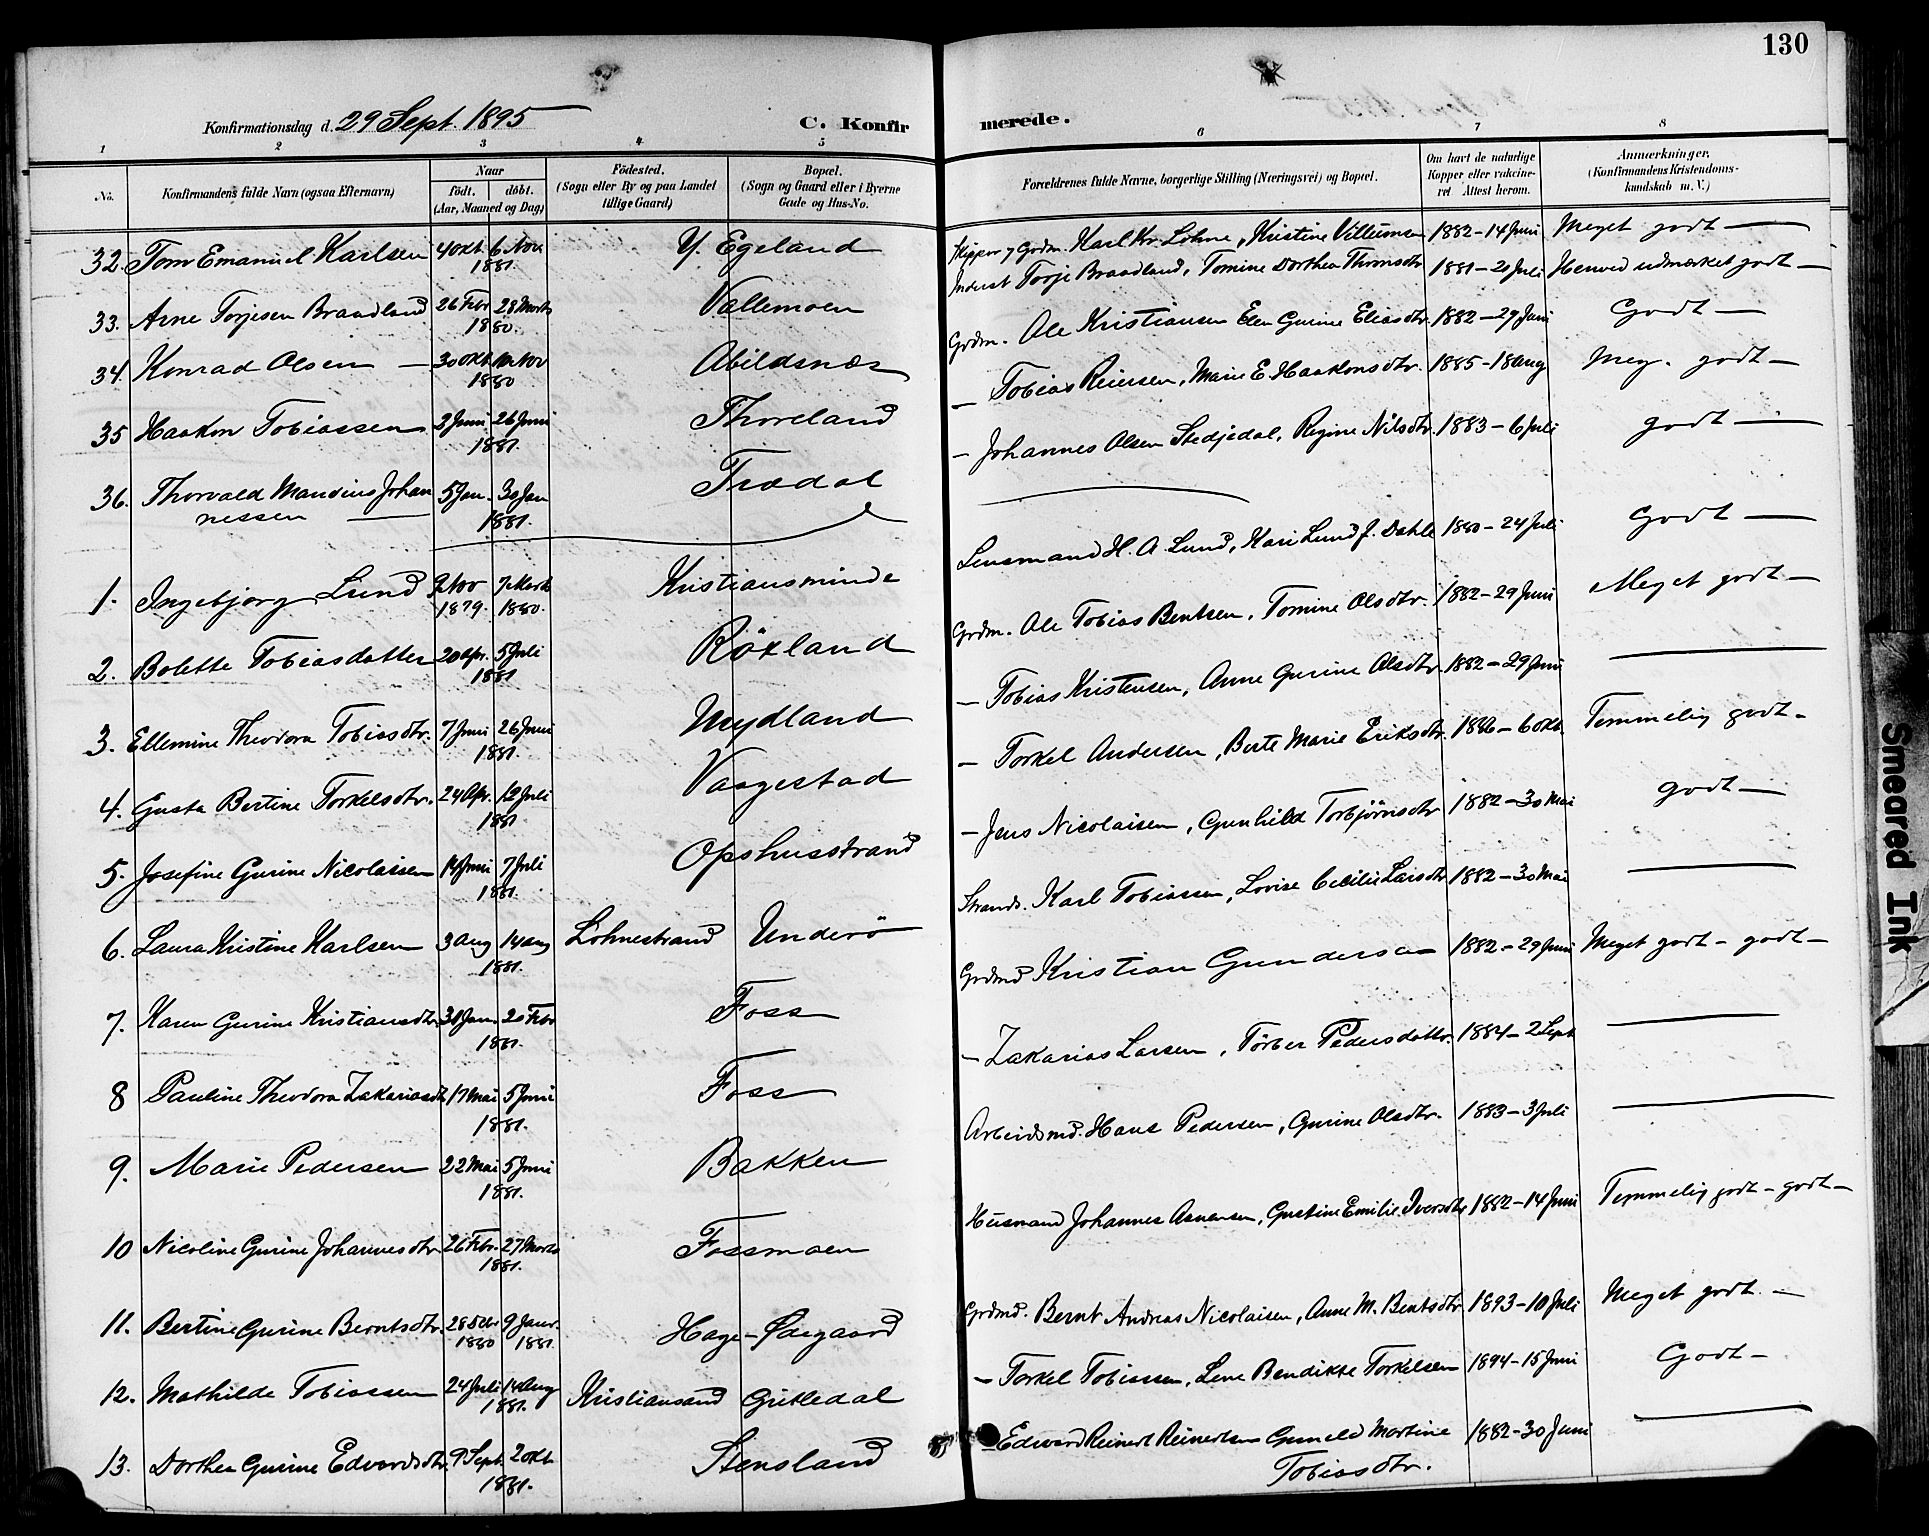 130
Konfirmationsdag d. 29 Sept. 1895
C. Konfirmerede.
1 2 3 4 5 6 7 8
No.
Konfirmandens fulde Navn (ogsaa Efternavn)
Naar
født. døbt.
(Aar, Maaned og Dag)
Fødested.
(Sogn eller By og paa Landet
tillige Gaard)
Bopæl.
(Sogn og Gaard eller i Byerne
Gade og Hus-No.
Forældrenes fulde Navne, borgerlige Stilling (Næringsvei) og Bopæl.
Om havt de naturlige
Kopper eller vaccine-
ret Attest herom.
Anmærkninger.
(Konfirmandens Kristendoms-
kundskab m. V.)
32. Tom Emanuel Karlsen 4 Okt 6 Nov 1881. Y. Egeland Skipper & Grdm. Karl Kr. Lohne, Kristine Villumsen 1882-14 Juni Meget godt
33. Arne Torjesen Braadland 26 Febr 28 Marts 1880. Vallemoen Inderst Torje Braadland, Tomine Dorthea Thomsdtr 1881-20 Juli Henved udmærket godt
34. Konrad Olsen 30 Okt. Nov 1880 Abildsnæs Grdm. Ole Kristiansen Elen Gurine Eliasdtr. 1882-29 Juni Godt
35 Haakon Tobiassen 2 Juni 26 Juni 1881. Thoreland — Tobias Reiersen, Marie E. Haakonsdtr. 1885-18 Aug Meg. godt
36. Thorvald Mandius Johan
nessen 5 Jan. 30 Jan 1881. Trædal — Johannes Olsen Stedjedal, Regine Nilsdtr. 1883-6 Juli godt
1. Ingebjorg Lund Nov 1879. 7 Marts 1880. Kristiansminde Lensmand H. A. Lund, Kari Lund f. Dahle 1880-24 Juli Godt
2. Bolette Tobiasdatter 20 Apr. 5 Juli 1881 Röxland Grdm. Ole Tobias Bentsen, Tomine Olsdtr. 1882-29 Juni Meget godt
3. Ellemine Theodora Tobiasdtr. 7 Juni 26 Juni 1881. Mydland — Tobias Kristensen, Anne Gurine Olsdtr. 1882-29 Juni —
4. Gusta Bertine Torkelsdtr. 24 Apr. 12 Juli 1881 Vaagestad — Torkel Andersen, Berte Marie Eriksdtr. 1886-6 Okt. Temmelig godt
5. Josefine Gurine Nicolaisen 14 Juni 7 Juli 1881. Opshusstrand — Jens Nicolaisen, Gunhild Torbjørnsdtr 1882-30 Mai godt
6. Laura Kristine Karlsen 3 Aug 14 Aug 1881. Lohnestrand Underö Strands. Karl Tobiassen, Lovise Cecilie Larsdtr 1882-30 Mai —
7. Karen Gurine Kristiansdtr. 31 Jan. 20 Febr 1881. Foss Grdmd Kristian Gundersen 1882-29 Juni Meget godt - godt
8 Pauline Theodora Zakariasdtr 17 Mai 5 Juni 1881. Foss — Zakarias Larsen, Tørber Pedersdattr. 1884-2 Sept —
9. Marie Pedersen 22 Mai 5 Juni 1881. Bakken Arbeidsmd. Hans Pedersen, Gurine Olsdtr. 1883-3 Juli —
10 Nicoline Gurine Johannesdtr. 26 Febr. 27 Marts 1881. Fossmoen Husmand Johannes Asnersen, Gustine Emilie Iversdtr 1882-14 Juni Temmelig godt - godt
11. Bertine Gurine Berntsdtr. 28 1880 9 Januar. 1881. Hage-Ødegaard Grdmd. Bernt Andreas Nicolaisen, Anne M. Bentsdtr. 1893-10 Juli Meget godt
12. Mathilde Tobiassen 24 Juli 14 Aug 1881. Kristiansand Gritledal — Torkel Tobiassen, Lene Bendikte Torkelsen 1894-15 Juni Godt
13. Dorthea Gurine Edvardsdtr 9 Sept. 2 Okt 1881. Stensland — Edvard Reinert Reinertsen Guneld Martine
Tobiasdtr. 1882-30 Juni —
Smeared Ink